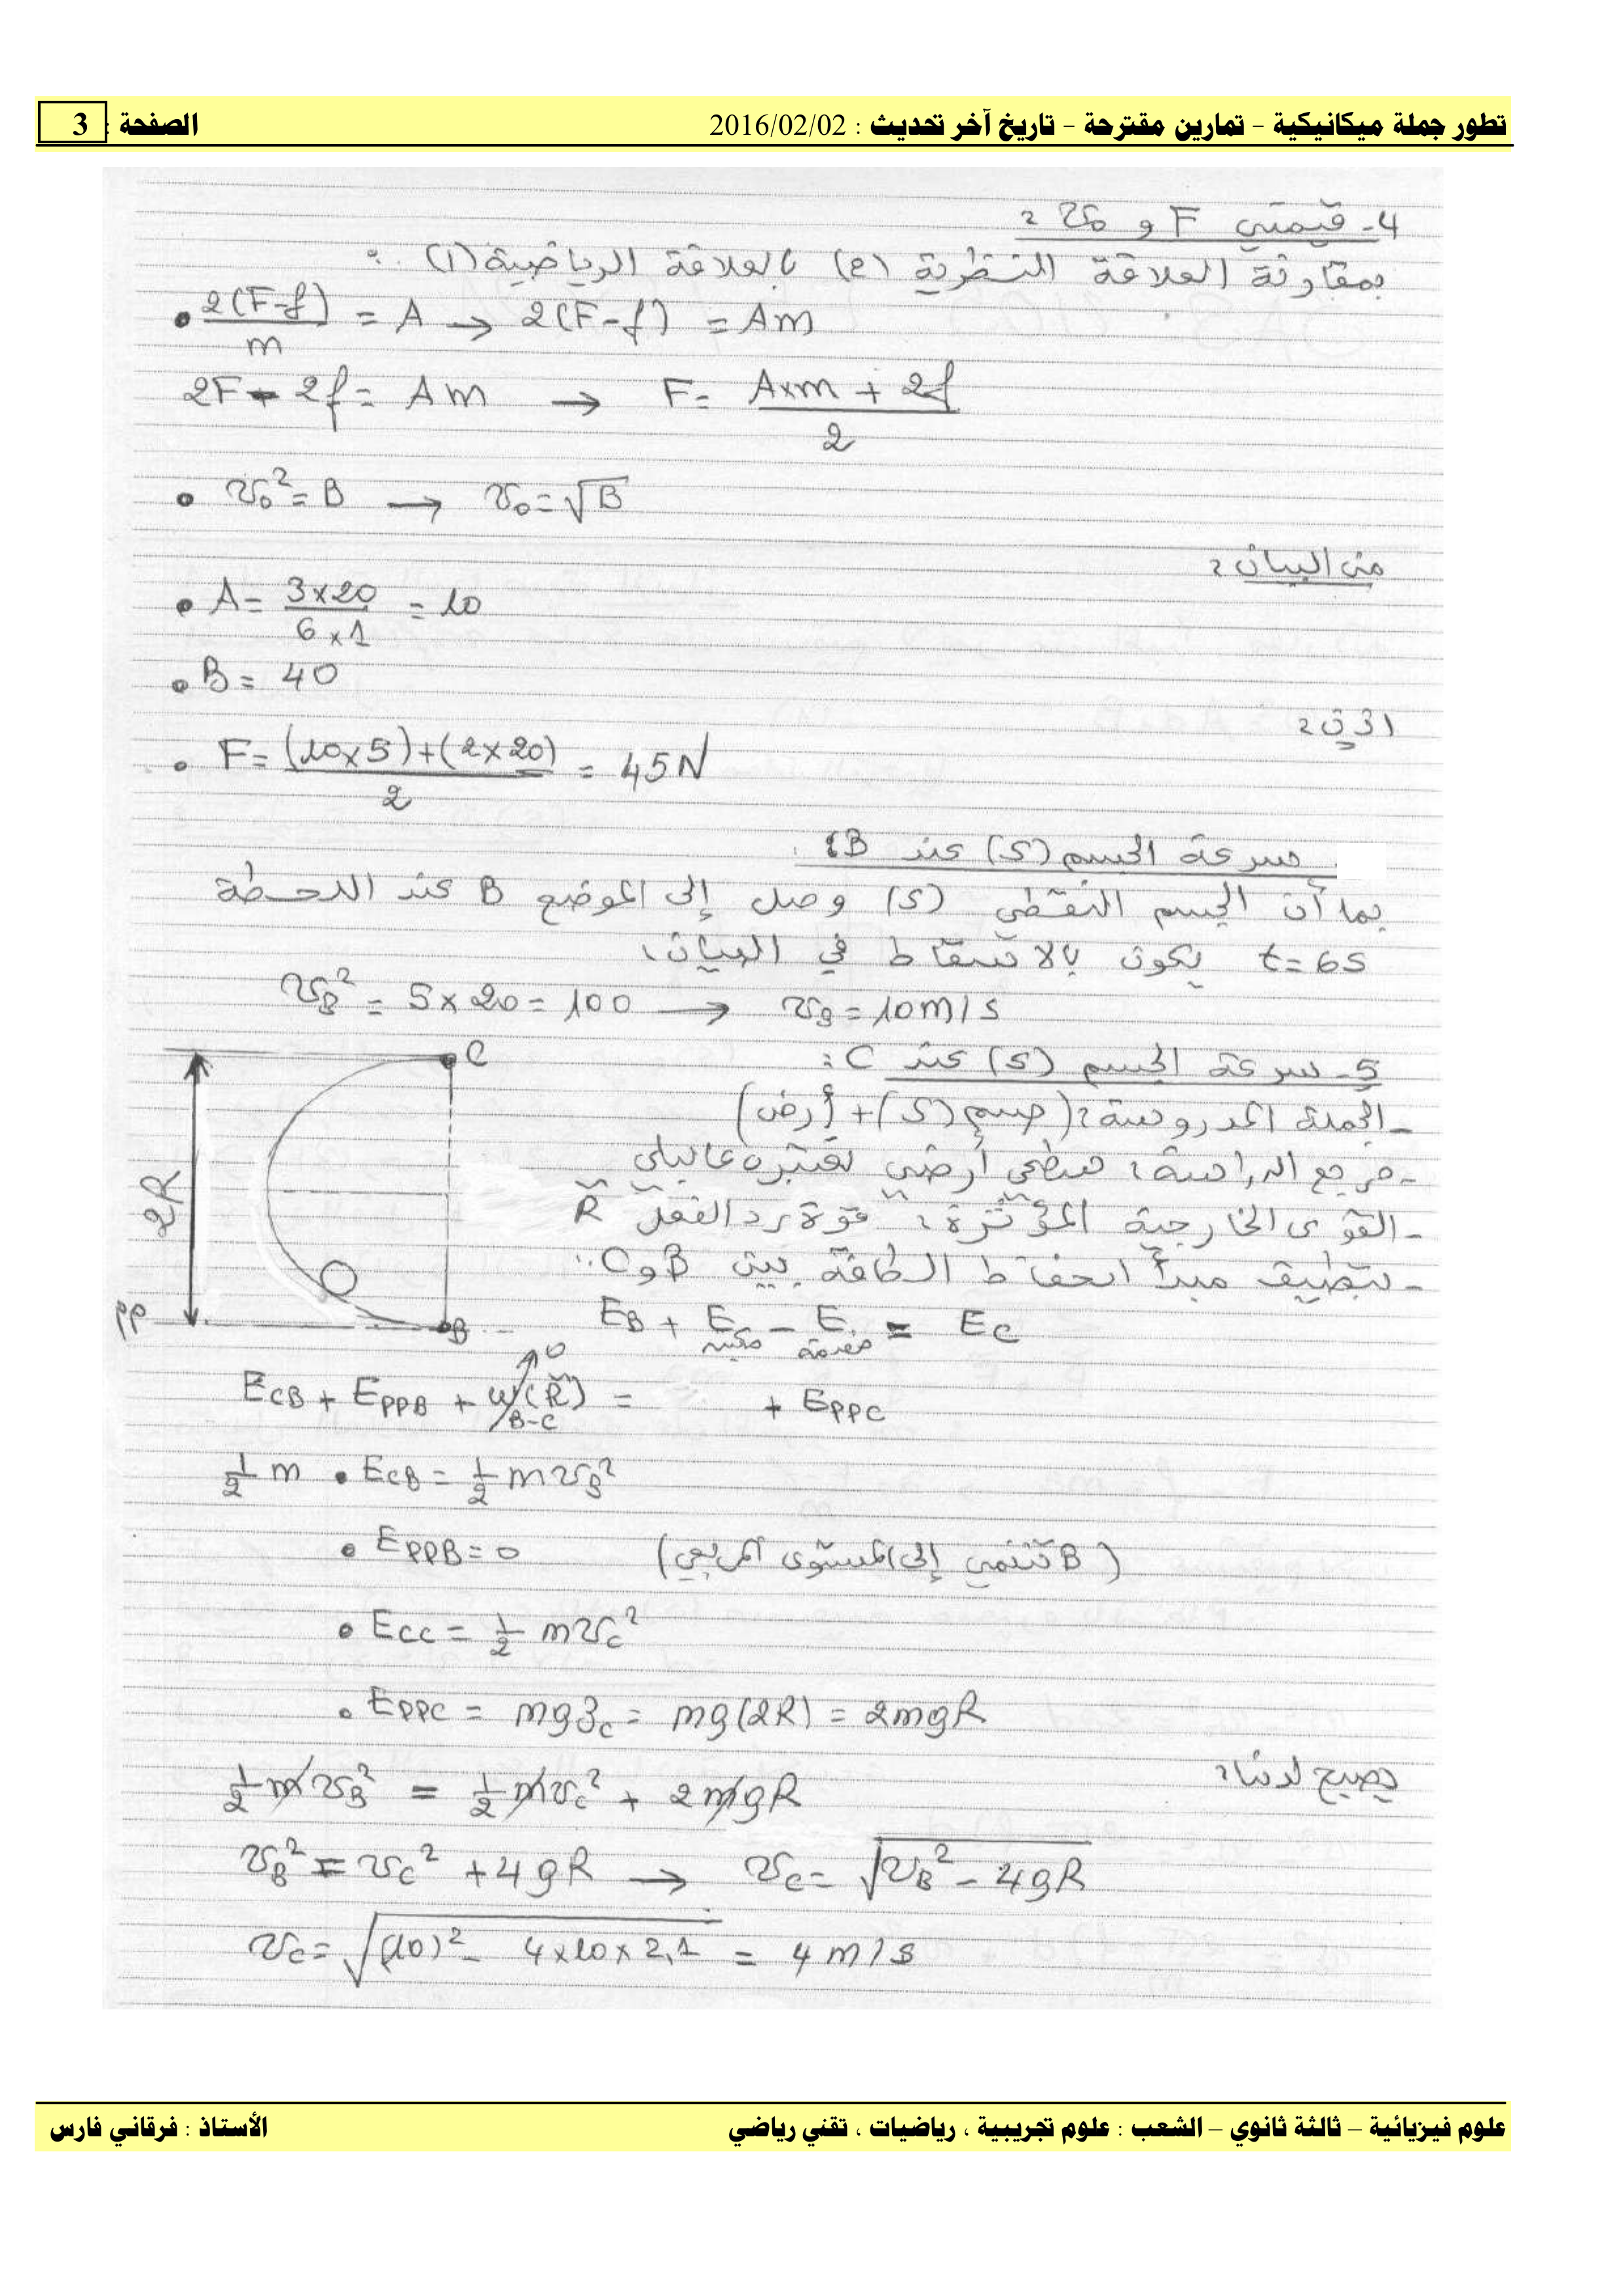 تطور جملة ميكانيكية - تمارين مقترحة - تاريخ آخر تحديث : 2016/02/02 الصفحة : 3
4- قيمتي F و v₀ :
بمقارنة العلاقة النظرية (2) بالعلاقة الرياضية (1) :
• 2(F-f)/m = A → 2(F-f) = Am
2F - 2f = Am → F = (A×m + 2f)/2
• v₀² = B → v₀ = √B
من البيان :
• A = (3×20)/(6×1) = 10
• B = 40
إذن :
• F = ((10×5)+(2×20))/2 = 45N
سرعة الجسم (S) عند B :
بما أن الجسم النقطي (S) وصل إلى الموضع B عند اللحظة
t=6s يكون بالاسقاط في البيان :
v_B² = 5×20 = 100 → v_B = 10m/s
5- سرعة الجسم (S) عند C :
C
2R
PP
B
- الجملة المدروسة : (جسم (S) + أرض)
- مرجع الدراسة : سطحي أرضي نعتبره غاليلي
- القوى الخارجية المؤثرة : قوة رد الفعل R
- بتطبيق مبدأ انحفاظ الطاقة بين B و C :
E_B + E مكتسبة - E مقدمة = E_C
E_CB + E_PPB + W_B-C(R) = + E_PPC
0
½m • E_CB = ½mv_B²
• E_PPB = 0 (B تنتمي إلى المستوى المرجعي)
• E_CC = ½mv_C²
• E_PPC = mgz_C = mg(2R) = 2mgR
يصبح لدينا :
½mv_B² = ½mv_C² + 2mgR
v_B² = v_C² + 4gR → v_C = √(v_B² - 4gR)
v_C = √((10)² - 4×10×2,1) = 4m/s
علوم فيزيائية – ثالثة ثانوي – الشعب : علوم تجريبية ، رياضيات ، تقني رياضي الأستاذ : فرقاني فارس